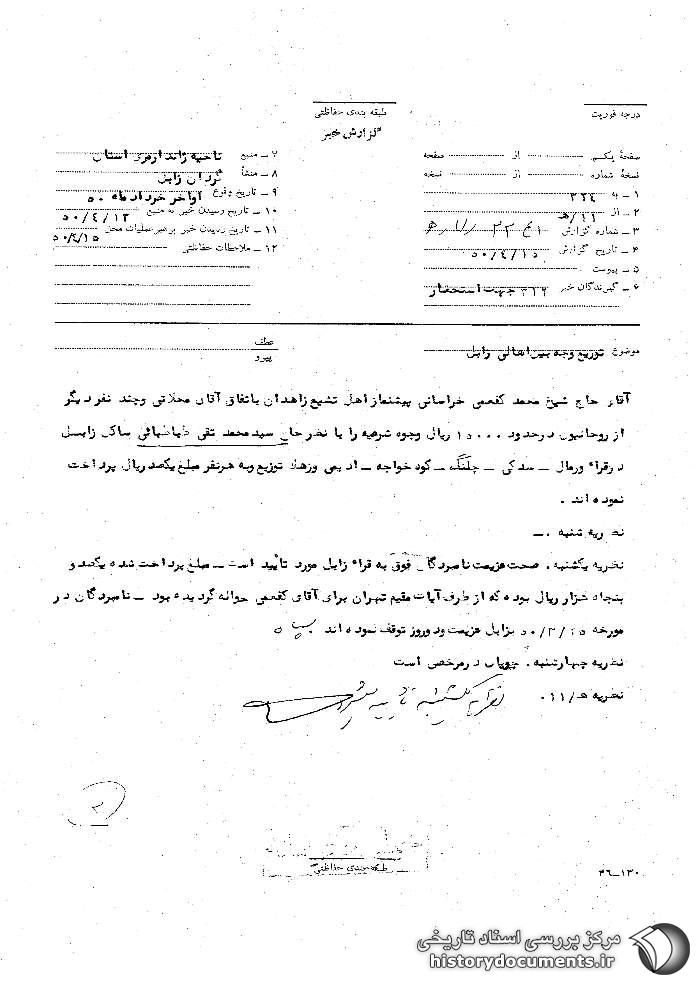 درجه فوریت
طبقه بندی حفاظتی
گزارش خبر
صفحهٔ یکم از صفحه
نسخهٔ شماره از نسخه
۱ ـ به ۳۳۴
۲ ـ از ۱۱/هـ
۳ ـ شماره گزارش
۴ ـ تاریخ گزارش ۵۰/۴/۱۵
۵ ـ پیوست
۶ ـ گیرندگان خبر ۳۱۲ جهت استحضار
۷ ـ منبع ناحیه ژاندارمری استان
۸ ـ منشأ گردان زابل
۹ ـ تاریخ وقوع اواخر خرداد ماه ۵۰
۱۰ ـ تاریخ رسیدن خبر به منبع ۵۰/۴/۱۳
۱۱ ـ تاریخ رسیدن خبر برهبر عملیات محل ۵۰/۴/۱۵
۱۲ ـ ملاحظات حفاظتی
موضوع توزیع وجه بین اهالی زابل
عطف
پیرو
آقای حاج شیخ محمد کفعمی خراسانی پیشنماز اهل تشیع زاهدان باتفاق آقای محلاتی وچند نفر دیگر
از روحانیون درحدود ۱۵۰۰۰۰ ریال وجوه شرعیه را با نظر حاج سید محمد تقی طباطبائی ساکن زابل
درقراء ورمال ـ سدکی ـ چلنگ ـ کوه خواجه ـ ادیمی وزهک توزیع وبه هرنفر مبلغ یکصد ریال پرداخت
نموده اند .
نظریه شنبه . ـ
نظریه یکشنبه . صحت عزیمت نامبردگان فوق به قراء زابل مورد تأیید است ـ مبلغ پرداخت شده یکصد و
پنجاه هزار ریال بوده که از طرف آیات مقیم تهران برای آقای کفعمی حواله گردیده بود ـ نامبردگان در
مورخه ۵۰/۳/۲۵ بزابل عزیمت ودو روز توقف نموده اند
نظریه چهارشنبه . جویاب در مرخصی است
نظریه هـ/۱۱ . نظریه یکشنبه تایید میشود
۲
طبقه بندی حفاظتی
۳۶ـ۱۳۰
مرکز بررسی اسناد تاریخی
historydocuments.ir